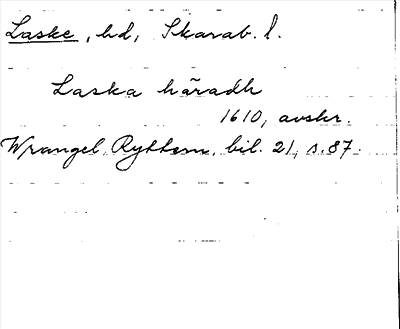 Laske, hd, Skarab. l.
Laska häradh
1610, avskr.
Wrangel, Rytthem, bil. 21, s. 87.